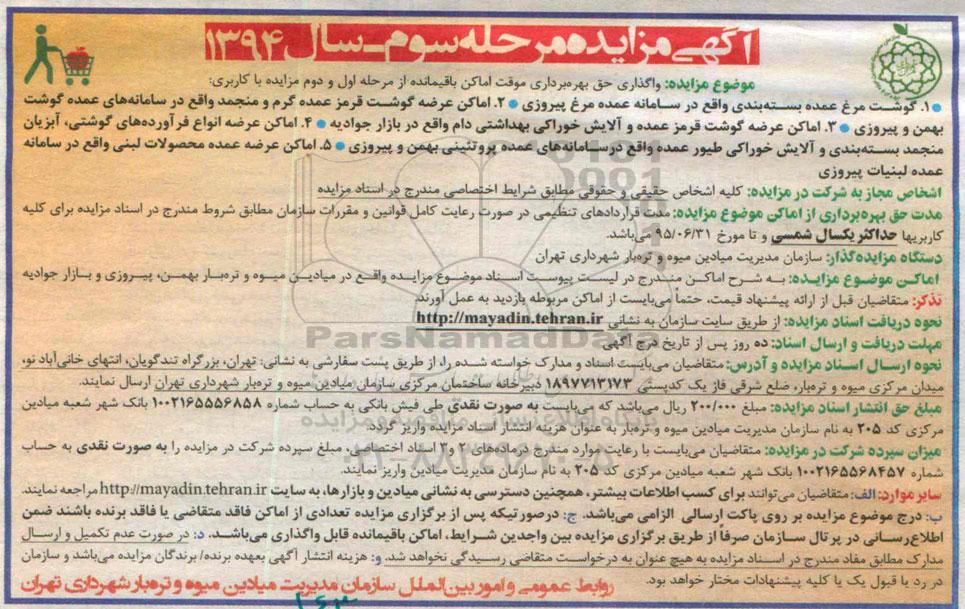 آگهی مزایده مرحله سوم - سال ۱۳۹۴
موضوع مزایده: واگذاری حق بهره‌برداری موقت اماکن باقیمانده از مرحله اول و دوم مزایده با کاربری:
● ۱. گوشت مرغ عمده بسته‌بندی واقع در سامانه عمده مرغ پیروزی ● ۲. اماکن عرضه گوشت قرمز عمده گرم و منجمد واقع در سامانه‌های عمده گوشت
بهمن و پیروزی ● ۳. اماکن عرضه گوشت قرمز عمده و آلایش خوراکی بهداشتی دام واقع در بازار جوادیه ● ۴. اماکن عرضه انواع فرآورده‌های گوشتی، آبزیان
منجمد بسته‌بندی و آلایش خوراکی طیور عمده واقع درسامانه‌های عمده پروتئینی بهمن و پیروزی ● ۵. اماکن عرضه عمده محصولات لبنی واقع در سامانه
عمده لبنیات پیروزی
اشخاص مجاز به شرکت در مزایده: کلیه اشخاص حقیقی و حقوقی مطابق شرایط اختصاصی مندرج در اسناد مزایده
مدت حق بهره‌برداری از اماکن موضوع مزایده: مدت قراردادهای تنظیمی در صورت رعایت کامل قوانین و مقررات سازمان مطابق شروط مندرج در اسناد مزایده برای کلیه
کاربریها حداکثر یکسال شمسی و تا مورخ ۹۵/۰۶/۳۱ می‌باشد.
دستگاه مزایده‌گذار: سازمان مدیریت میادین میوه و تره‌بار شهرداری تهران
اماکن موضوع مزایده: به شرح اماکن مندرج در لیست پیوست اسناد موضوع مزایده واقع در میادین میوه و تره‌بار بهمن، پیروزی و بازار جوادیه
تذکر: متقاضیان قبل از ارائه پیشنهاد قیمت، حتماً می‌بایست از اماکن مربوطه بازدید به عمل آورند.
نحوه دریافت اسناد مزایده: از طریق سایت سازمان به نشانی http://mayadin.tehran.ir
مهلت دریافت و ارسال اسناد: ده روز پس از تاریخ درج آگهی
نحوه ارسال اسناد مزایده و آدرس: متقاضیان می‌بایست اسناد و مدارک خواسته شده را، از طریق پست سفارشی به نشانی: تهران، بزرگراه تندگویان، انتهای خانی‌آباد نو،
میدان مرکزی میوه و تره‌بار، ضلع شرقی فاز یک کدپستی ۱۸۹۷۷۱۳۱۷۳ دبیرخانه ساختمان مرکزی سازمان میادین میوه و تره‌بار شهرداری تهران ارسال نمایند.
مبلغ حق انتشار اسناد مزایده: مبلغ ۲۰۰/۰۰۰ ریال می‌باشد که می‌بایست به صورت نقدی طی فیش بانکی به حساب شماره ۱۰۰۲۱۶۵۵۵۶۸۵۸ بانک شهر شعبه میادین
مرکزی کد ۲۰۵ به نام سازمان مدیریت میادین میوه و تره‌بار به عنوان هزینه انتشار اسناد مزایده واریز گردد.
میزان سپرده شرکت در مزایده: متقاضیان می‌بایست با رعایت موارد مندرج درماده‌های ۲ و ۳ اسناد اختصاصی، مبلغ سپرده شرکت در مزایده را به صورت نقدی به حساب
شماره ۱۰۰۲۱۶۵۵۶۸۴۵۷ بانک شهر شعبه میادین مرکزی کد ۲۰۵ به نام سازمان مدیریت میادین واریز نمایند.
سایر موارد: الف: متقاضیان می‌توانند برای کسب اطلاعات بیشتر، همچنین دسترسی به نشانی میادین و بازارها، به سایت http://mayadin.tehran.ir مراجعه نمایند.
ب: درج موضوع مزایده بر روی پاکت ارسالی الزامی می‌باشد. ج: درصورتیکه پس از برگزاری مزایده تعدادی از اماکن فاقد متقاضی یا فاقد برنده باشند ضمن
اطلاع‌رسانی در پرتال سازمان صرفاً از طریق برگزاری مزایده بین واجدین شرایط، اماکن باقیمانده قابل واگذاری می‌باشد. د: در صورت عدم تکمیل و ارسال
مدارک مطابق مفاد مندرج در اسناد مزایده به هیچ عنوان به درخواست متقاضی رسیدگی نخواهد شد. و: هزینه انتشار آگهی بعهده برنده/ برندگان مزایده می‌باشد و سازمان
در رد یا قبول یک یا کلیه پیشنهادات مختار خواهد بود.
روابط عمومی و امور بین‌الملل سازمان مدیریت میادین میوه و تره‌بار شهرداری تهران
ParsNamadData